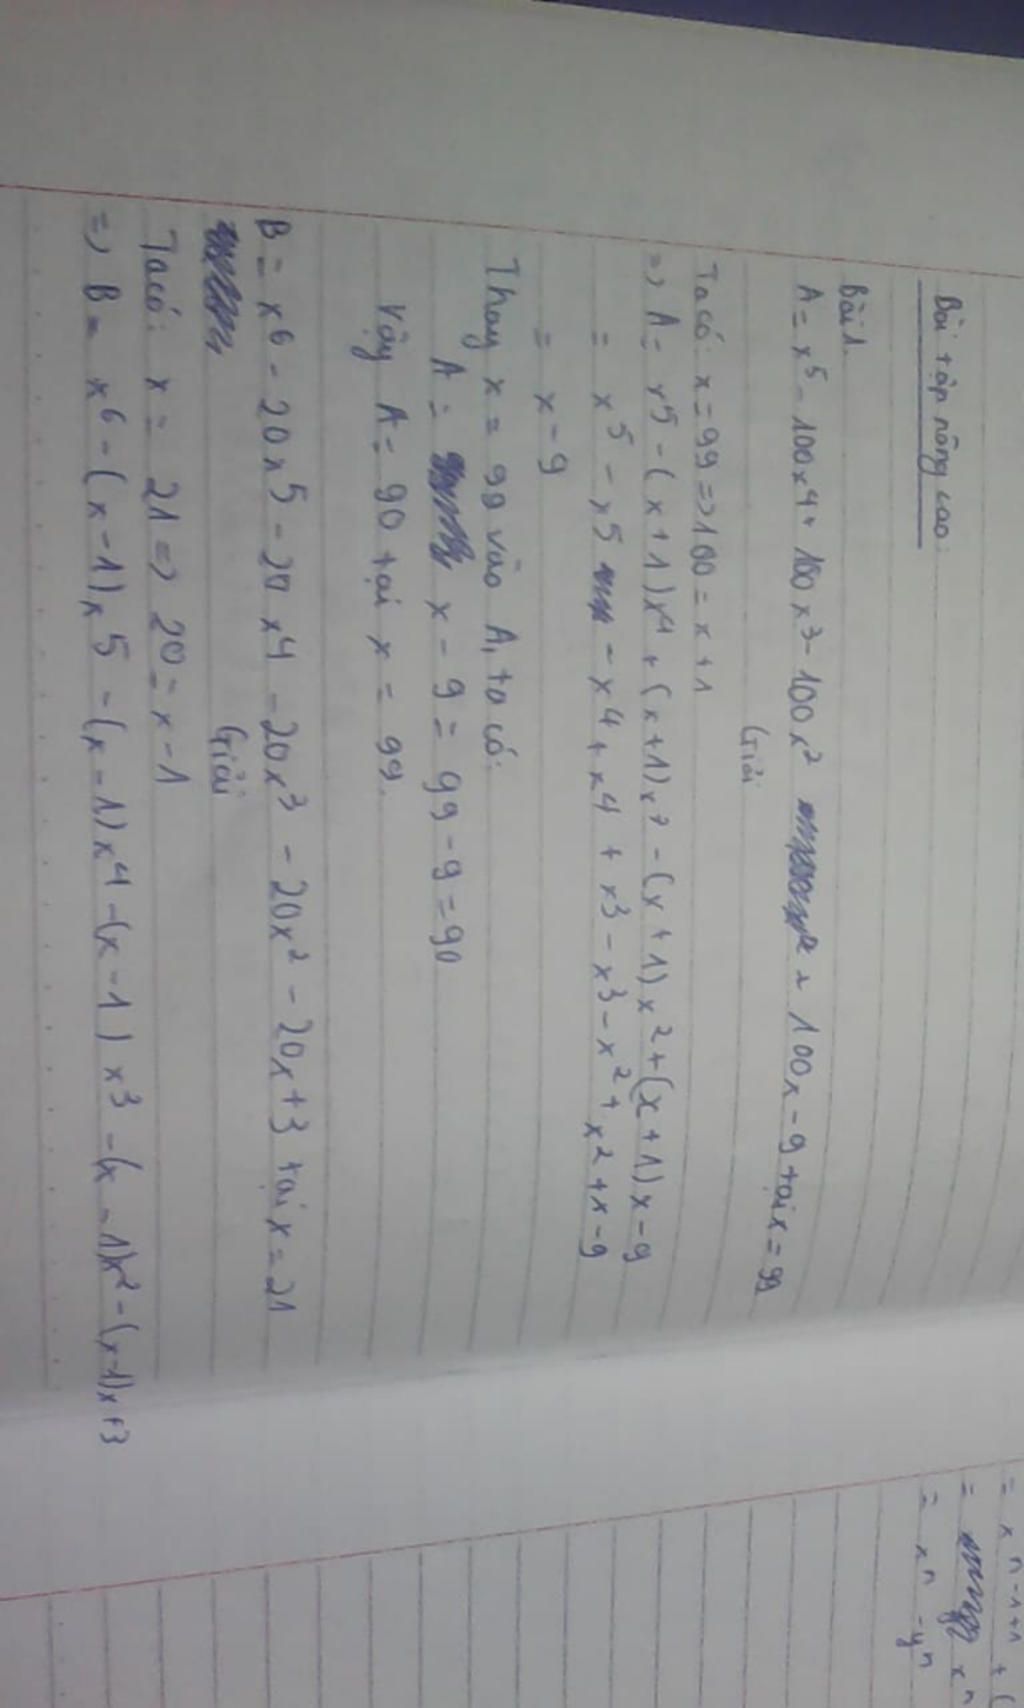 Bài tập nâng cao:
Bài 1.
A = x⁵ - 100x⁴ + 100x³ - 100x² + 100x - 9 tại x = 99
Giải
Ta có: x = 99 => 100 = x + 1
=> A = x⁵ - (x + 1)x⁴ + (x + 1)x³ - (x + 1)x² + (x + 1)x - 9
= x⁵ - x⁵ - x⁴ + x⁴ + x³ - x³ - x² + x² + x - 9
= x - 9
Thay x = 99 vào A, ta có:
A = x - 9 = 99 - 9 = 90
Vậy A = 90 tại x = 99.
B = x⁶ - 20x⁵ - 20x⁴ - 20x³ - 20x² - 20x + 3 tại x = 21
Giải
Ta có: x = 21 => 20 = x - 1
=> B = x⁶ - (x - 1)x⁵ - (x - 1)x⁴ - (x - 1)x³ - (x - 1)x² - (x - 1)x + 3
= xⁿ⁻¹⁺¹ + (
= xⁿ
= xⁿ - yⁿ